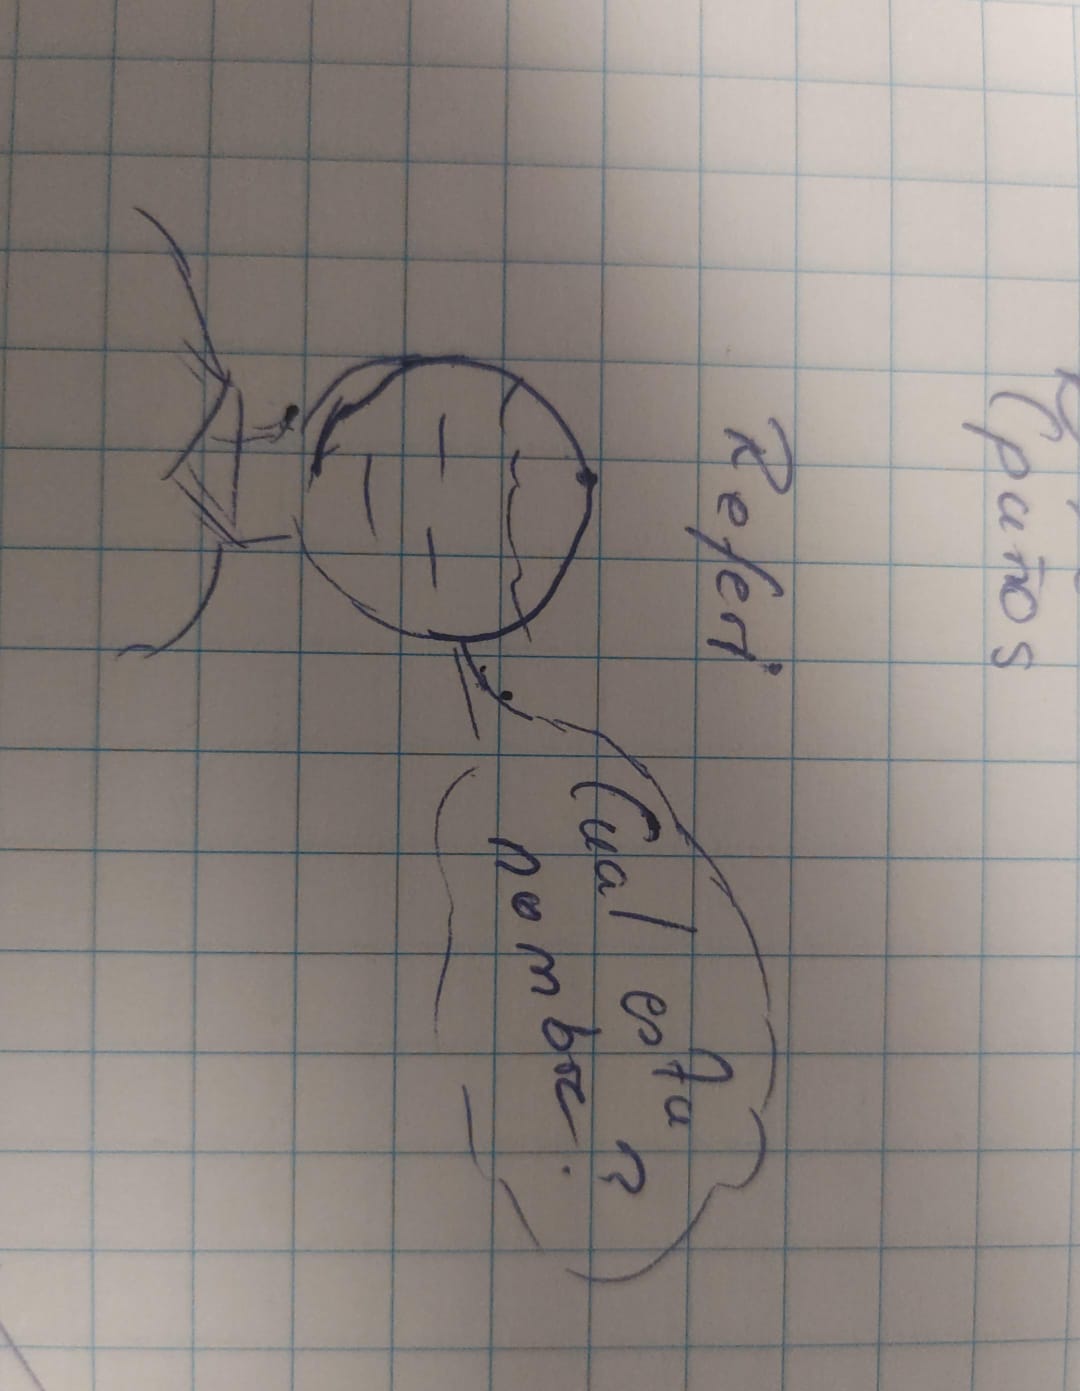 (paños
Referi
Cual es tu
nombre?